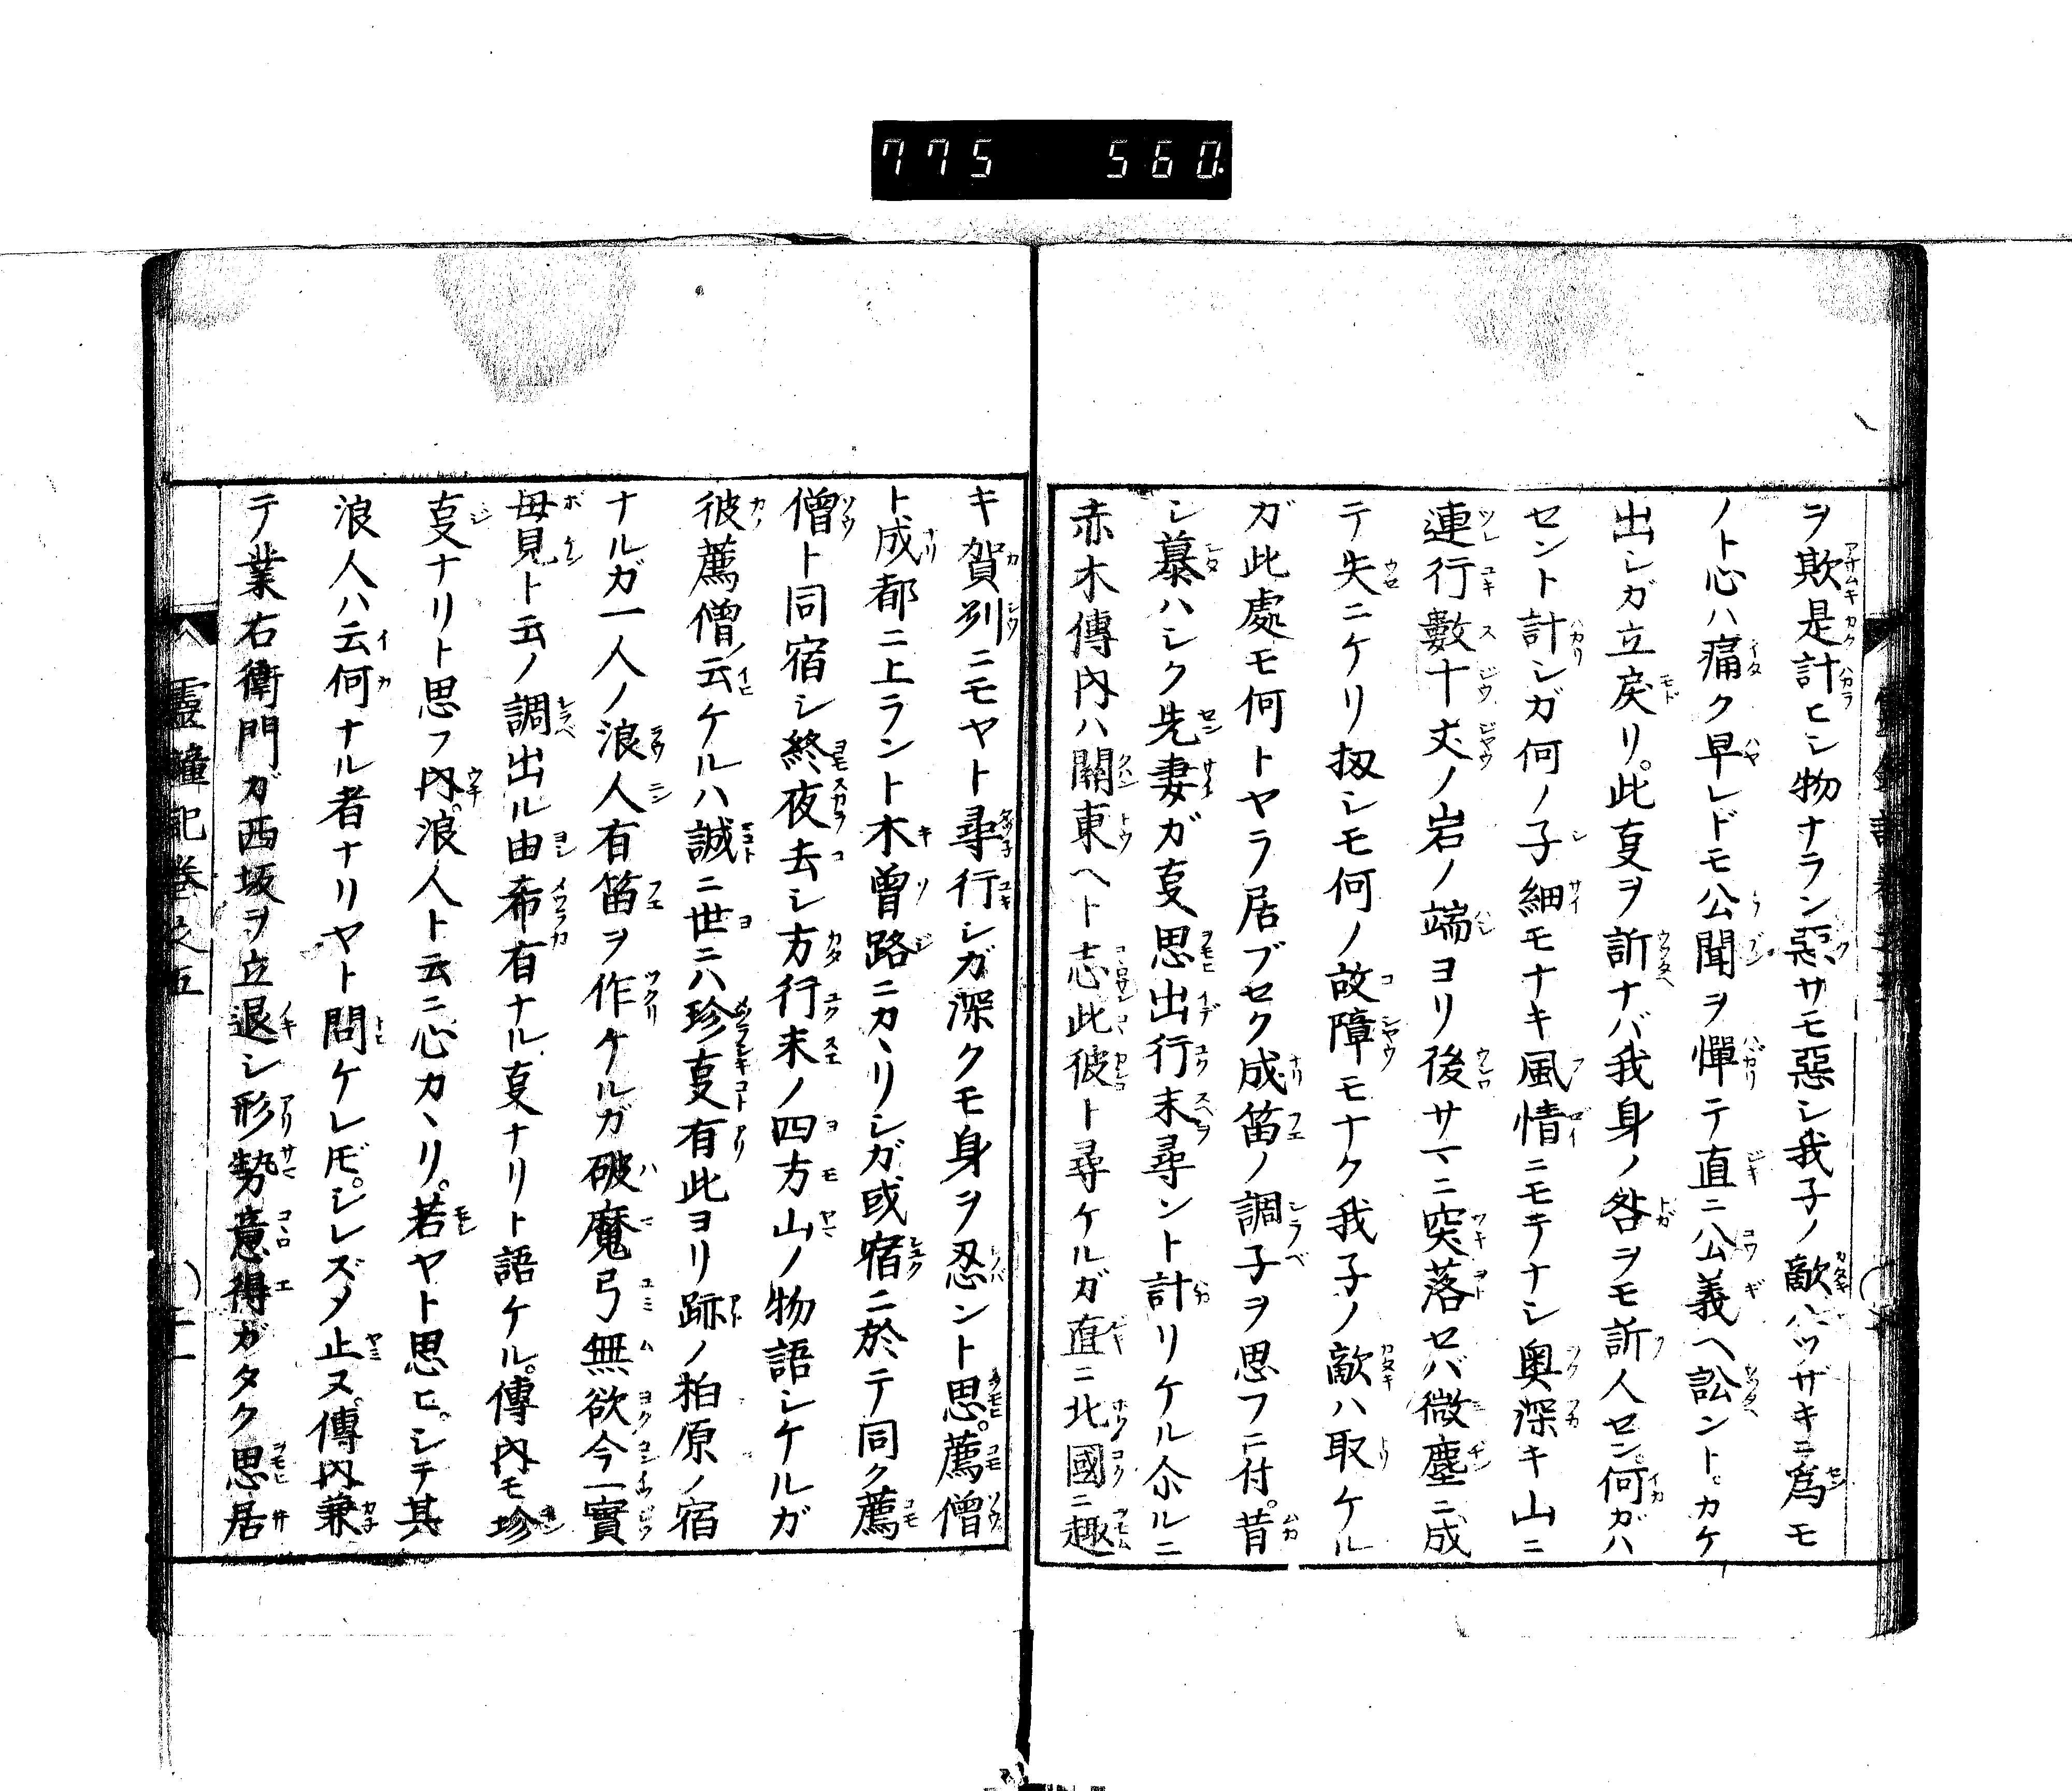 775 560.
ヲ欺是計ヒシ物ナラン惡サモ惡シ我子ノ敵ハツザキニ爲モ
ノト心ハ痛ク早レドモ公聞ヲ憚テ直ニ公義ヘ訟ント。カケ
出シガ立戻リ。此叓ヲ訴ナバ我身ノ咎ヲモ訴人セン。何ガハ
セント計シガ何ノ子細モナキ風情ニモテナシ奥深キ山ニ
連行數十丈ノ岩ノ端ヨリ後サマニ突落セバ微塵ニ成
テ失ニケリ扨シモ何ノ故障モナク我子ノ敵ハ取ケル
ガ此處モ何トヤラ居ブセク成笛ノ調子ヲ思フニ付。昔
シ慕ハシク先妻ガ叓思出行末尋ント計リケル尒ルニ
赤木傳内ハ關東ヘト志此彼ト尋ケルガ直ニ北國ニ趣
キ賀刕ニモヤト尋行シガ深クモ身ヲ忍ント思。薦僧
ト成都ニ上ラント木曽路ニカヽリシガ或宿ニ於テ同ク薦
僧ト同宿シ終夜去シ方行末ノ四方山ノ物語シケルガ
彼薦僧云ケルハ誠ニ世ニハ珍叓有此ヨリ跡ノ柏原ノ宿
ナルガ一人ノ浪人有笛ヲ作ケルガ破魔弓無欲今一實
母見ト云ノ調出ル由希有ナル叓ナリト語ケル。傳内モ珍
叓ナリト思フ内。浪人ト云ニ心カヽリ。若ヤト思ヒ。シテ其
浪人ハ云何ナル者ナリヤト問ケレ𪜈。シレズノ止ヌ。傳内兼
テ業右衛門ガ西坂ヲ立退シ形勢意得ガタク思居
靈鐘記巻之五